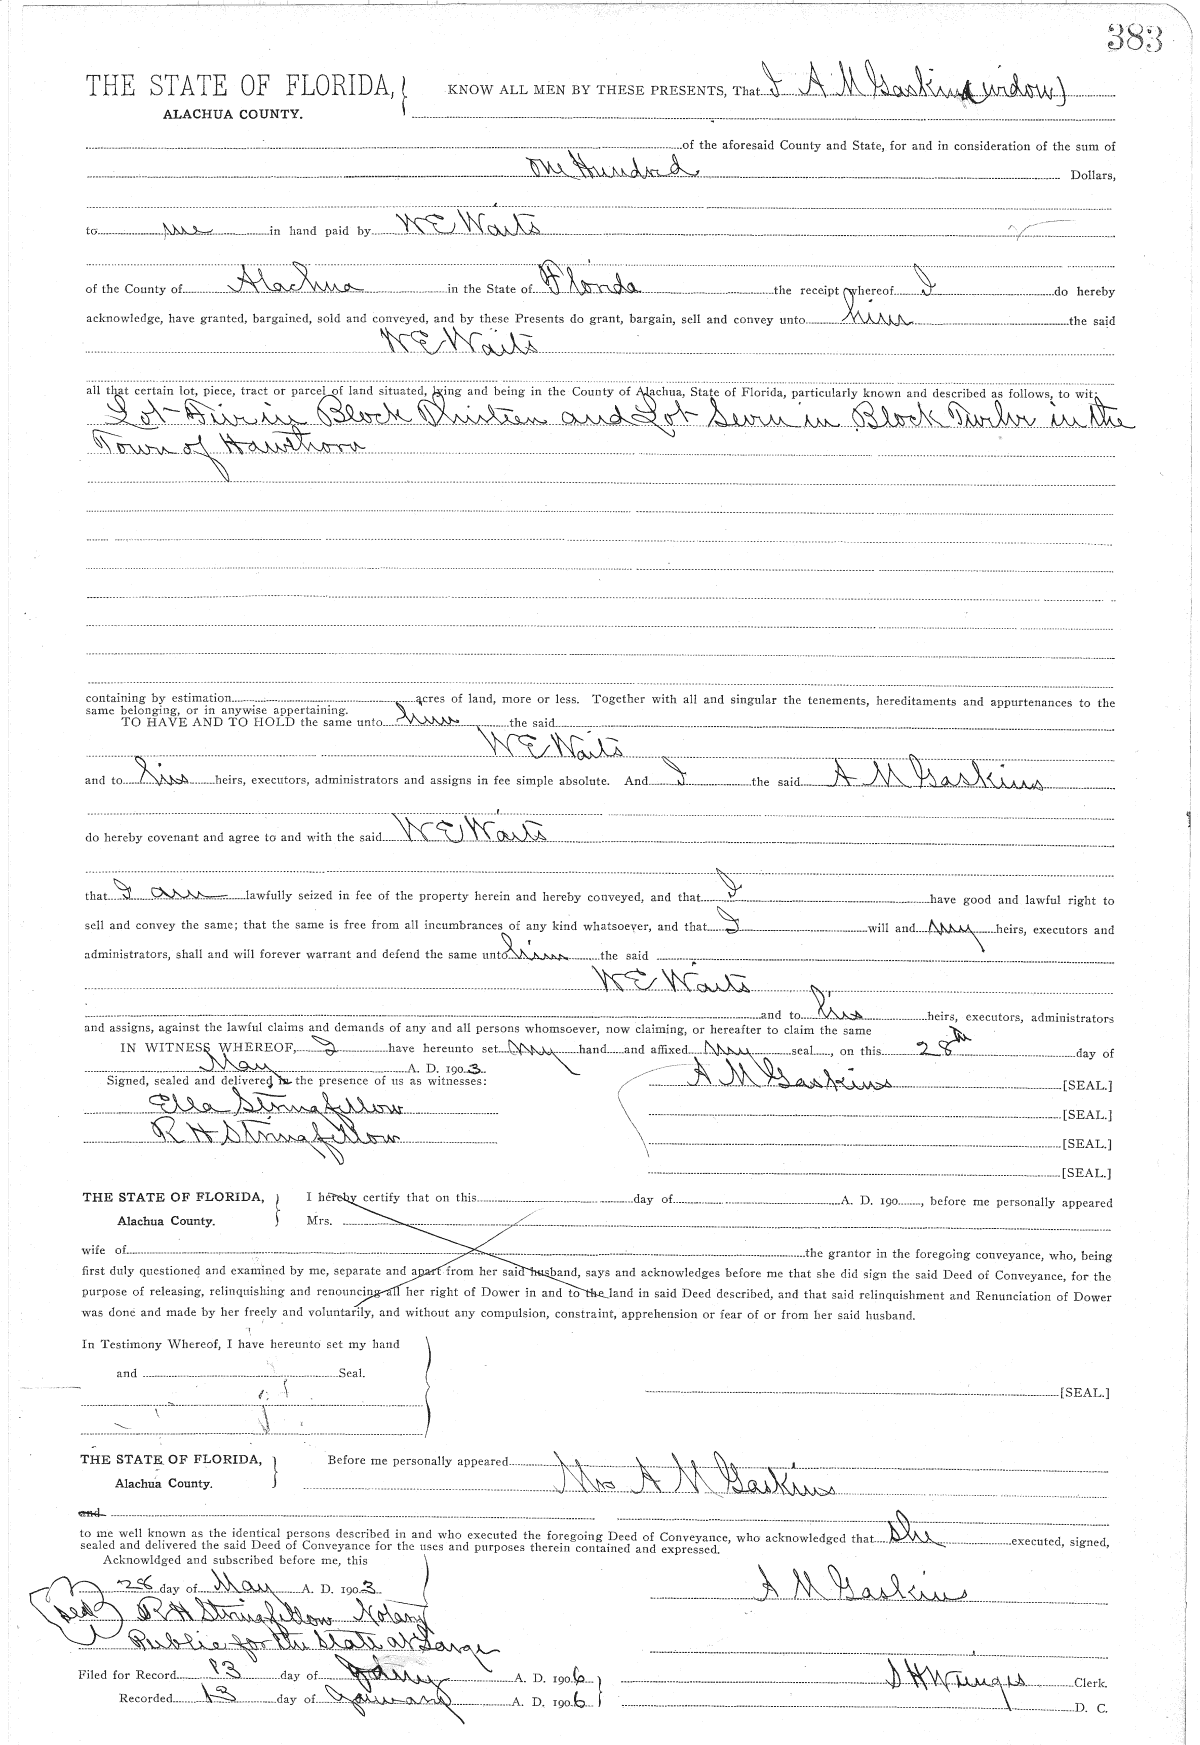 383
THE STATE OF FLORIDA, KNOW ALL MEN BY THESE PRESENTS, That I A M Gaskins (widow)
ALACHUA COUNTY.
of the aforesaid County and State, for and in consideration of the sum of
One Hundred Dollars,
to me in hand paid by W E Waits
of the County of Alachua in the State of Florida the receipt whereof I do hereby
acknowledge, have granted, bargained, sold and conveyed, and by these Presents do grant, bargain, sell and convey unto him the said
W E Waits
all that certain lot, piece, tract or parcel of land situated, lying and being in the County of Alachua, State of Florida, particularly known and described as follows, to wit:
Lot in Block Thirteen and Lot Seven in Block Twelve in the
Town of Hawthorn
containing by estimation acres of land, more or less. Together with all and singular the tenements, hereditaments and appurtenances to the
same belonging, or in anywise appertaining.
TO HAVE AND TO HOLD the same unto him the said
W E Waits
and to his heirs, executors, administrators and assigns in fee simple absolute. And I the said A M Gaskins
do hereby covenant and agree to and with the said W E Waits
that I am lawfully seized in fee of the property herein and hereby conveyed, and that I have good and lawful right to
sell and convey the same; that the same is free from all incumbrances of any kind whatsoever, and that I will and my heirs, executors and
administrators, shall and will forever warrant and defend the same unto him the said
W E Waits
and to his heirs, executors, administrators
and assigns, against the lawful claims and demands of any and all persons whomsoever, now claiming, or hereafter to claim the same
IN WITNESS WHEREOF, I have hereunto set my hand and affixed my seal, on this 28th day of
May A. D. 1903
Signed, sealed and delivered in the presence of us as witnesses: A M Gaskins [SEAL.]
Ella Stringfellow [SEAL.]
R H Stringfellow [SEAL.]
[SEAL.]
THE STATE OF FLORIDA, I hereby certify that on this day of A. D. 190 , before me personally appeared
Alachua County. Mrs.
wife of the grantor in the foregoing conveyance, who, being
first duly questioned and examined by me, separate and apart from her said husband, says and acknowledges before me that she did sign the said Deed of Conveyance, for the
purpose of releasing, relinquishing and renouncing all her right of Dower in and to the land in said Deed described, and that said relinquishment and Renunciation of Dower
was done and made by her freely and voluntarily, and without any compulsion, constraint, apprehension or fear of or from her said husband.
In Testimony Whereof, I have hereunto set my hand
and Seal.
[SEAL.]
THE STATE OF FLORIDA, Before me personally appeared
Alachua County. Mrs A M Gaskins
and
to me well known as the identical persons described in and who executed the foregoing Deed of Conveyance, who acknowledged that she executed, signed,
sealed and delivered the said Deed of Conveyance for the uses and purposes therein contained and expressed.
Acknowldged and subscribed before me, this
28 day of May A. D. 1903 A M Gaskins
Seal R H Stringfellow Notary
Public for the State at Large
Filed for Record 13 day of A. D. 1906 S H Wienges Clerk.
Recorded 13 day of January A. D. 1906 D. C.